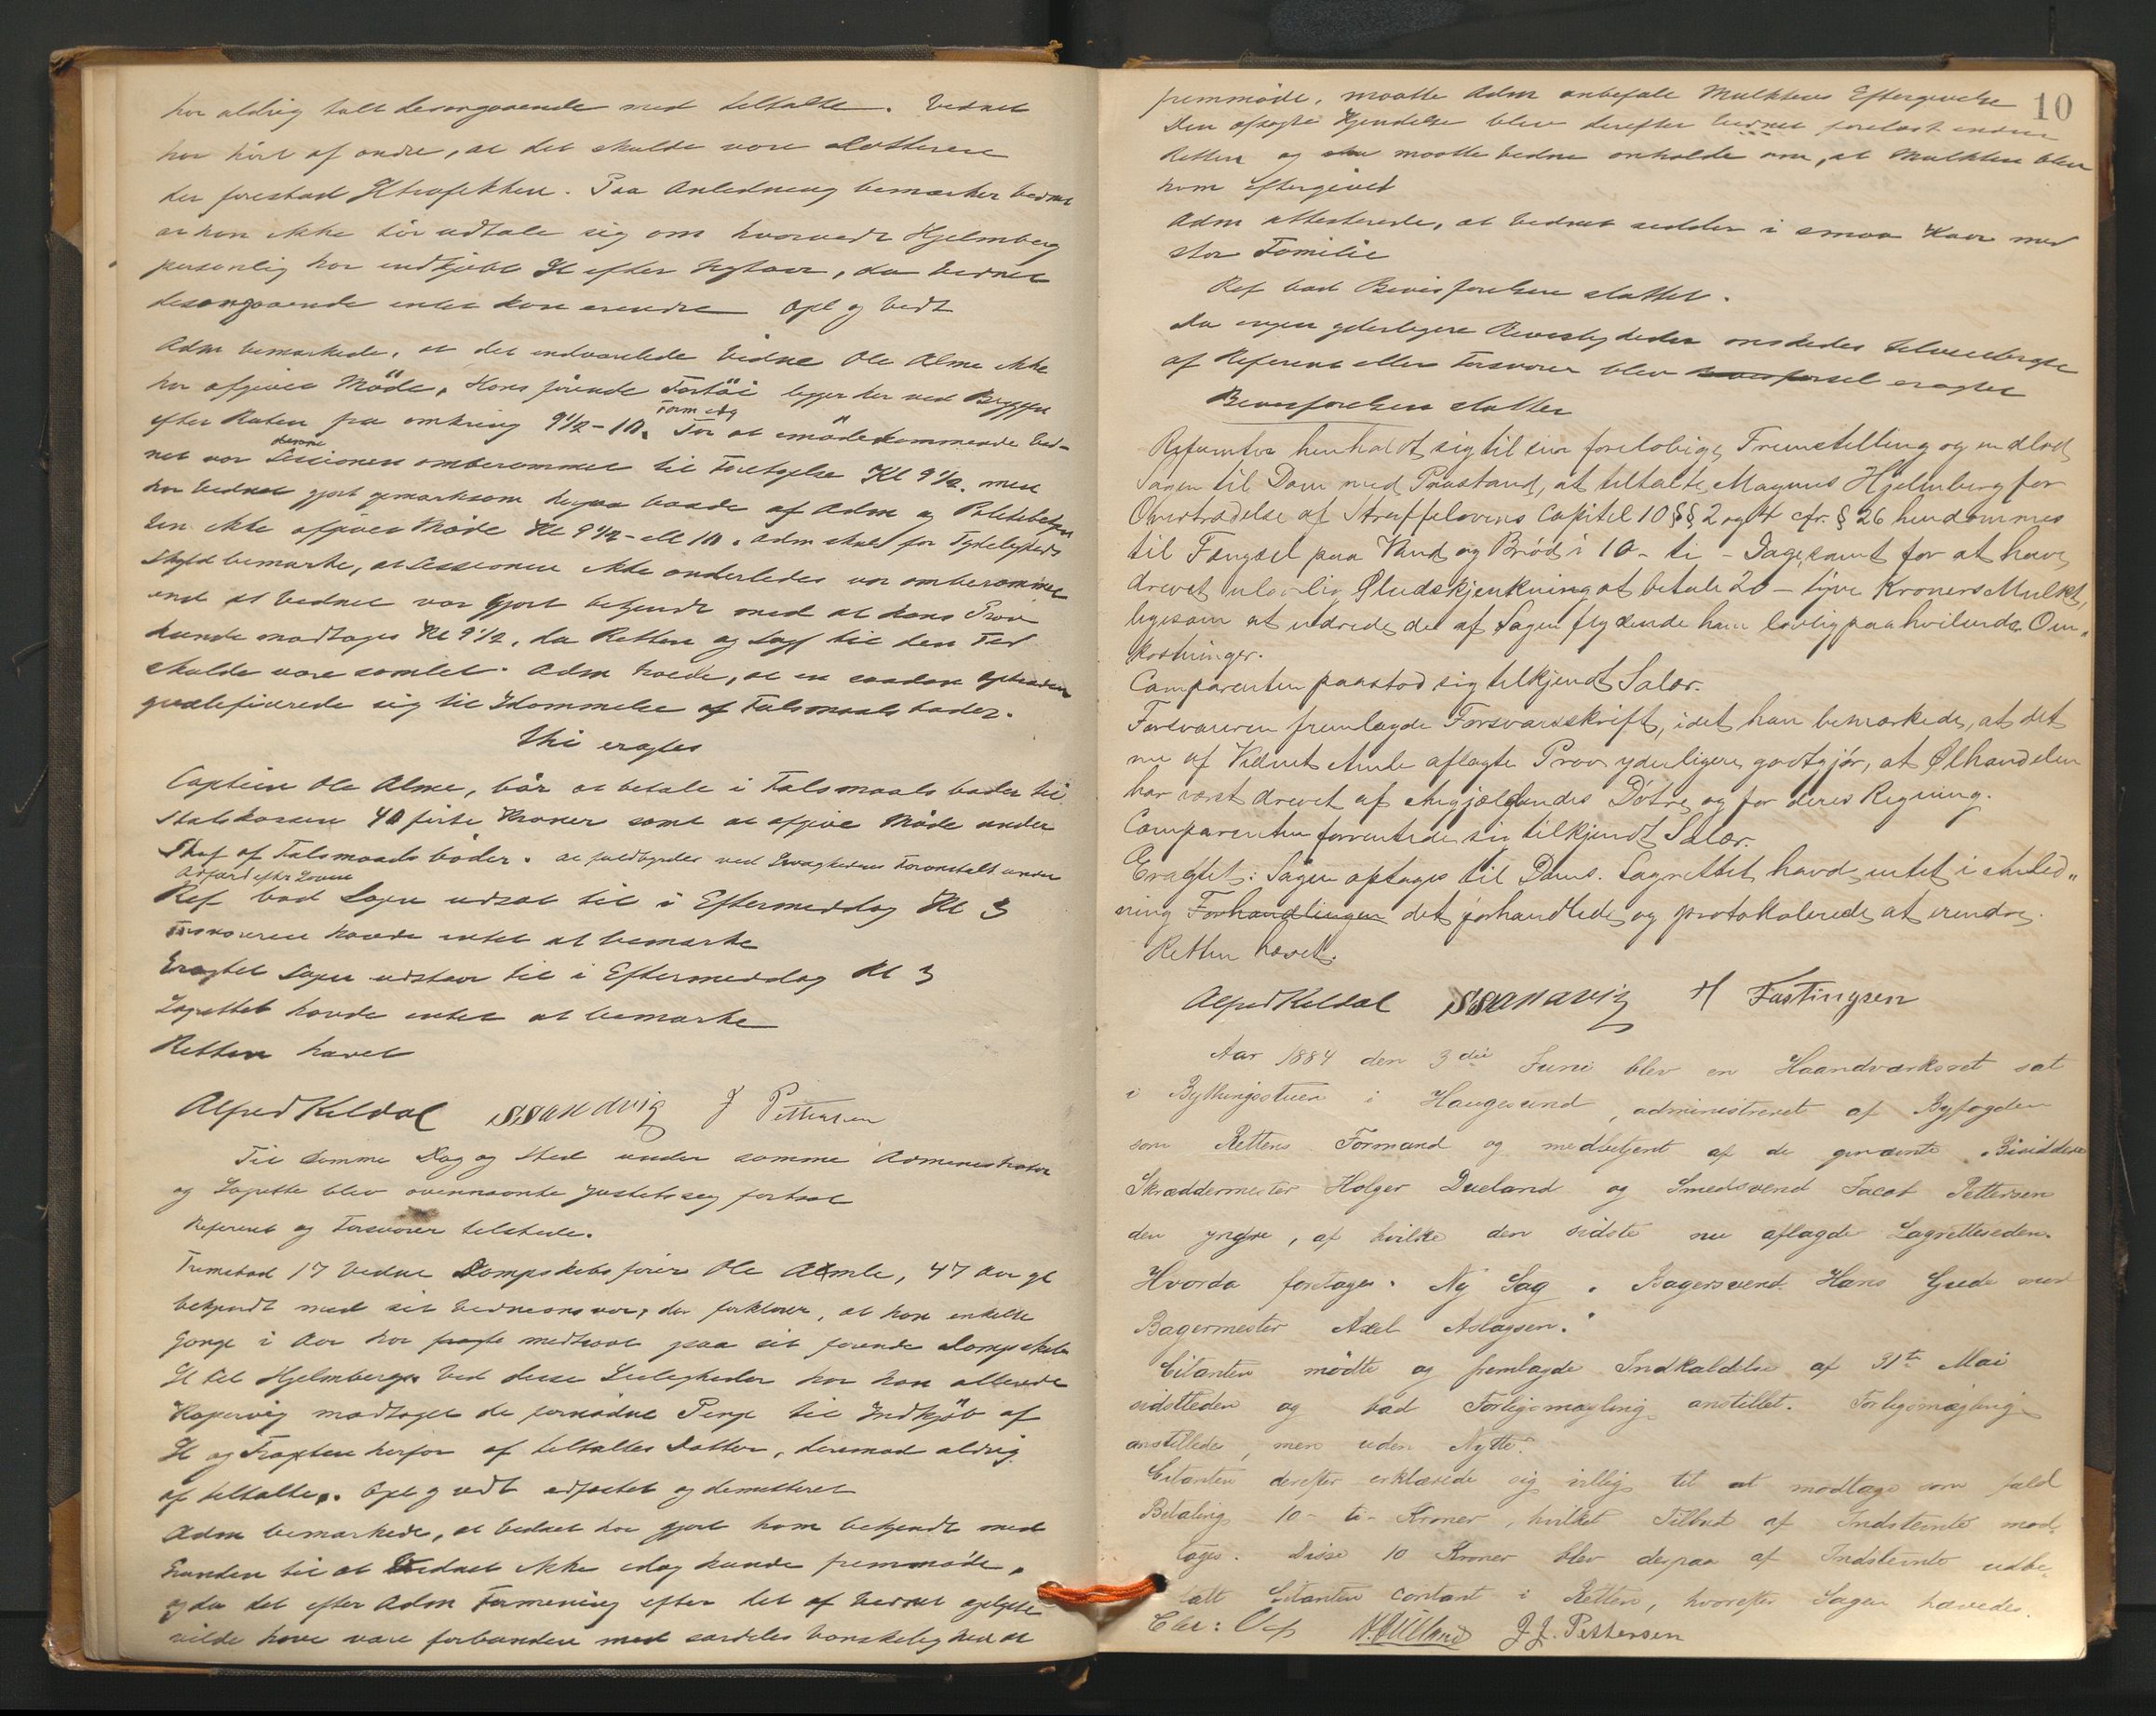 har aldrig talt desangaaende med tiltalte. Vidnet
har hört af andre, at det skulde være Døttrene
der forestod Øltrafikken. Paa Anledning bemærker Vidnet
at han ikke tör udtale sig om hvorvidt Hjelmberg
personlig har indkjøbt Øl efter Nytaar, da Vidnet
desangaaende intet kan erindre Opl g Vedt
Adm bemærkede, at det indvarslede Vidne Ole Alme ikke
har afgivet Möde. Hans förende Fartöi ligger her ved Bryggen
efter Ruten fra omkring 9½-10. Form idag For at imödekommende Vid-
net var denne Sessionen omberammet til Foretagelse Kl 9½. men
har Vidnet gjort opmærksom herpaa baade af Adm og Politibetjen
ten ikke afgivet Möde Kl 9½ - ell 10. Adm skal for Tydeligheds
Skyld bemærke, at Sessionen ikke anderledes var omberammet
end at Vidnet var gjort bekjendt med at hans Prov
kunde modtages Kl 9½, da Retten og Lagr til den Tid
skulde være samlet. Adm troede, at en saadan Opførsel
qvalificerede sig til Idømmelse af Falsmaals bøder.
Thi eragtes
Captein Ole Alme, bör at betale i Falsmaals bøder til
Statskassen 40 firti Kroner samt at afgive Möde under
Straf af Falsmaals böder. at fuldbyrdes ved Øvrighedens Foranstalt under
Adfærd efter Loven
Ref bad Sagen udsat til i Eftermiddag Kl 3
Forsvareren havde intet at bemærke
Eragtet Sagen udstaar til i Eftermiddag Kl 3
Lagrettet havde intet at bemærke
Retten hævet
Alfred Keldal SSandvig J Pettersen
Til samme Dag og Sted under samme Administrator
og Lagrette blev ovennævnte Justitssag fortsat
Referent og Forsvarer tilstede.
Fremstod 17 Vidne Dampskibsfører Ole Amle, 47 Aar gl
bekjendt med sit Vidneansvar, der forklarer, at han enkelte
Gange i Aar har fragte medtaget paa sit førende Dampskib
Øl til Hjelmberg. Ved disse Leiligheder har han allerede
Kopervig modtaget de fornödne Penge til Indkjöb af
Øl og Fragten herfor af tiltaltes Datter, derimod aldrig
af tiltalte. Opl g vedt edfæstet og demitteret
Adm bemærkede, at Vidnet har gjort ham bekjendt med
Grunden til at Vidnet ikke idag kunde fremmöde,
og da det efter Adm Formening efter det af Vidnet oplyste
vilde have være forbunden med særdeles Vanskelighed at
10
fremmöde, maatte Adm anbefale Mulktens Eftergivelse
Den afsagte Kjendelse blev derefter Vidnet forelæst inden
Retten og maatte Vidne anholde om, at Mulkten blev
ham eftergivet
Adm attesterede, at Vidnet sidder i smaa Kaar med
stor Familie
Ref bad Bevisførelsen sluttet.
Da ingen yderligere Bevisligheder ønskedes tilveiebragte
af Referent eller Forsvarer blev eragtet
Bevisførelsen sluttet
Referenten henholdt sig til sin foreløbige Fremstilling og indlod
Sagen til Dom med Paastand, at tiltalte, Magnus Hjelmberg for
Overtrædelse af Straffelovens Capitel 10 §§ 2 og 4 cfr. § 26 hendømmes
til Fængsel paa Vand og Bröd i 10 - ti - Dage, samt for at have
drevet ulovlig Øludskjenkning at betale 20 - tyve Kroners Mulkt,
ligesom at udrede de af Sagen flydende ham lovlig paahvilende Om-
kostninger.
Comparenten paastod sig tilkjendt Salær.
Forsvareren fremlagde Forsvarsskrift, idet han bemærkede, at det
nu af Vidnet Amle aflagte Prov yderligere godtgjör, at Ølhandelen
har været drevet af Angjældendes Döttre og for deres Regning.
Comparenten forventede sig tilkjendt Salær.
Eragtet: Sagen optages til Doms. Lagrettet havde intet i Anled-
ning Forhandlingen det forhandlede og protokolerede at erindre.
Retten hævet.
Alfred Keldal SSandvig H Fastingsen
Aar 1884 den 3die Juni blev en Haandværksret sat
i Bythingsstuen i Haugesund, administreret af Byfogden
som Rettens Formand og medbetjent af de opnævnte Bisiddere
Skræddermester Holger Dueland og Smedsvend Jacob Pettersen
den yngre, af hvilke den sidste nu aflagde Lagretteseden.
Hvorda foretages. Ny Sag. Bagersvend Hans Gude mod
Bagermester Axel Aslagsen.
Citanten mödte og fremlagde Indkaldelse af 31te Mai
sidstleden og bad Forligsmægling anstillet. Forligsmægling
anstilledes, men uden Nytte.
Citanten derefter erklærede sig villig til at modtage som fuld
Betaling 10 - ti - Kroner, hvilket Tilbud af Indstevnte mod-
toges. Disse 10 Kroner blev derpaa af Indstevnte udbe-
talt Citanten contant i Retten, hvorefter Sagen hævedes.
H. Düland J J. Pettersen